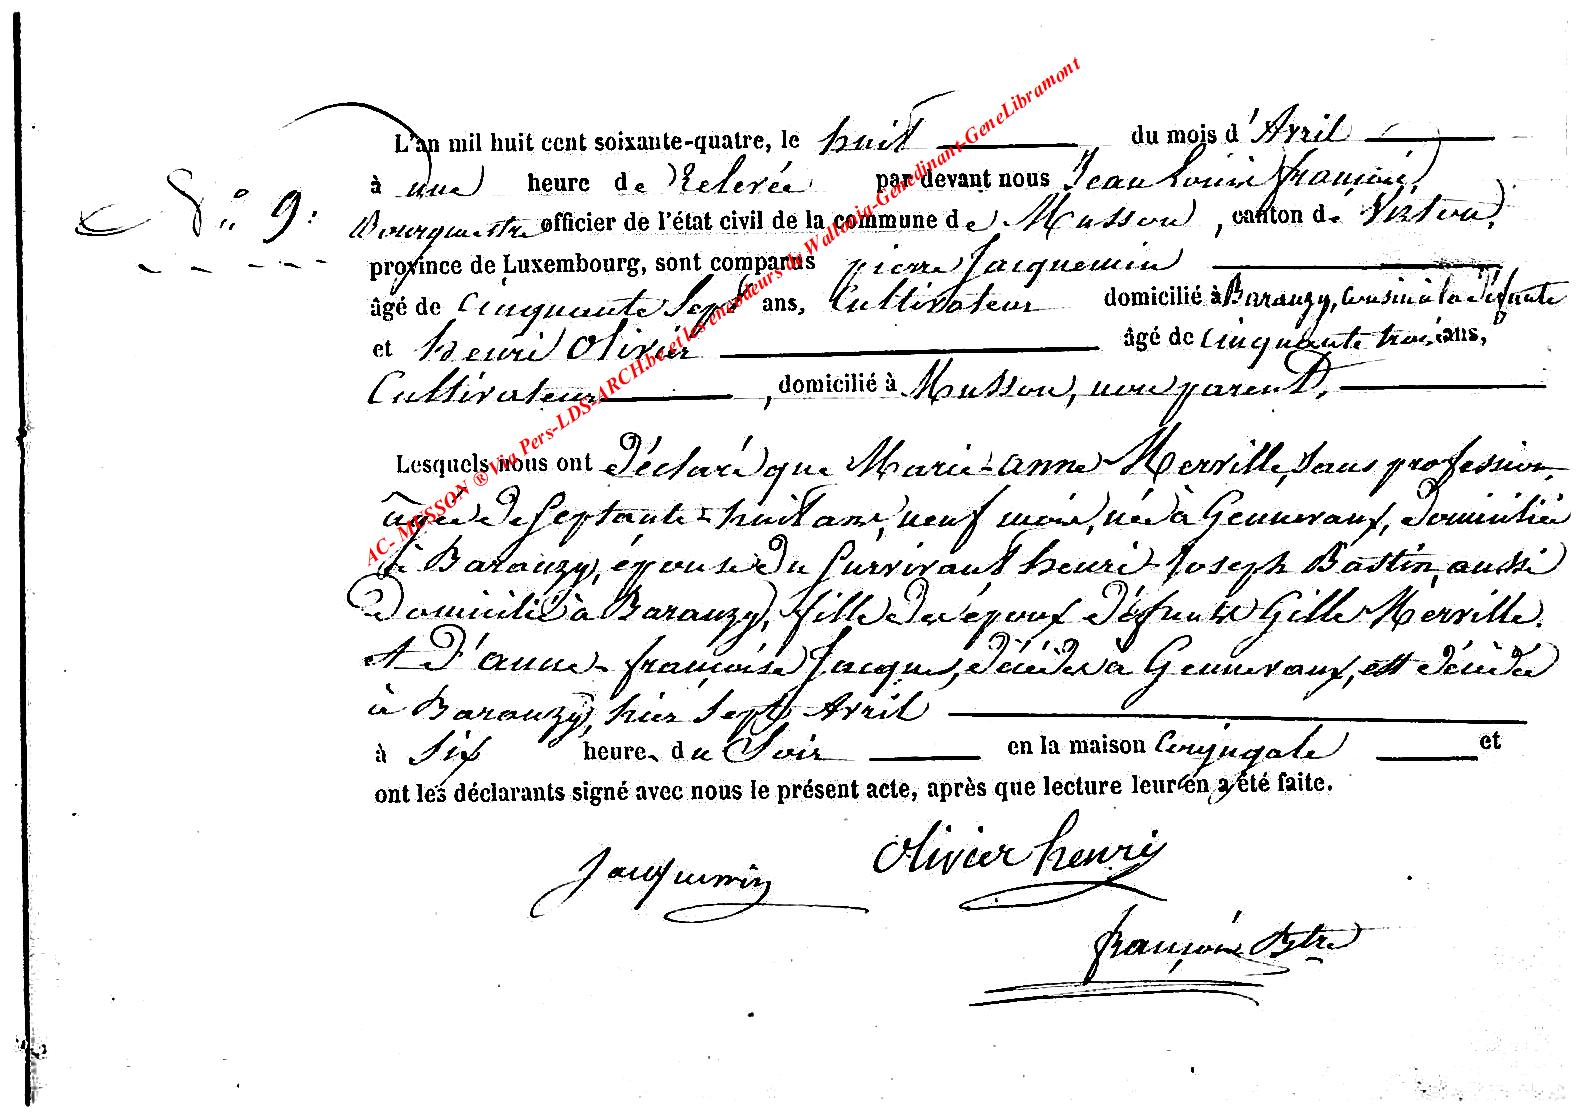 L'an mil huit cent soixante-quatre, le huit du mois d'Avril
à une heure de Relevée par devant nous Jean Louis françois,
N° 9. Bourguestre officier de l'état civil de la commune de Musson, canton de Virton,
province de Luxembourg, sont comparus pierre Jacquemin
âgé de Cinquante Sept ans, Cultivateur domicilié à Baranzy, cousin à la défunte
et henri Olivier âgé de Cinquante trois ans,
Cultivateur, domicilié à Musson, non parent.
Lesquels nous ont déclaré que Marie-anne Merville, sans profession,
âgée de Septante-huit ans, neuf mois, née à Gennevaux, domiciliée
à Baranzy, épouse du Survivant henri-Joseph Bastin, aussi
domicilié à Baranzy, fille des époux défunts Gille Merville
et d'anne-françoise Jacques, décédés à Gennevaux, est décédée
à Baranzy, hier Sept Avril
à Six heures du Soir en la maison Conjugale et
ont les déclarants signé avec nous le présent acte, après que lecture leur en a été faite.
Jacquemin
Olivier henri
françois Bgtre
AC- MUSSON ® Via Pers-LDS-ARCH.be et les encodeurs de Wallonia-Genedinant-GeneLibramont